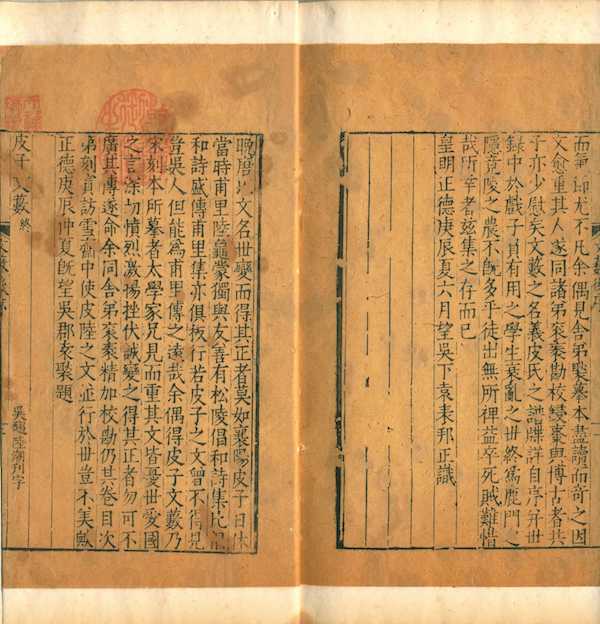 尤不凡余偶見舍弟褧摹本盡讀而奇之因
文愈重其人遂同諸弟勘校棗與博古者共
子亦少慰矣文藪之名義皮氏之譜牒詳自序并世
錄中於戲子負有用之學生衰亂之世終焉鹿門之
隱竟陵之農不旣多乎徒出無所裨益卒死賊難惜
哉所幸者茲集之存而已
皇明正德庚辰夏六月望吳下袁表邦正識
晚唐以文名世變而得其正者莫如襄陽皮子日休
當時甫里陸龜蒙獨與友善有松陵倡和詩集比
和詩盛傳甫里集亦俱板行若皮子之文曾不得見
豈吳人但能為甫里傳之遠哉余偶得皮子文藪乃
宋刻本所摹者太學家兄見而重其文皆憂世愛國
之言深切憤烈激揚挫伏誠變之得其正者勿可不
廣其傳遂命余同舍弟精加校勘仍其卷目次
弟刻訪中使皮陸之文並行於世豈不美歟
正德庚辰仲夏旣望吳郡袁褧題
吳趨陸潮刊字
皮子文藪終